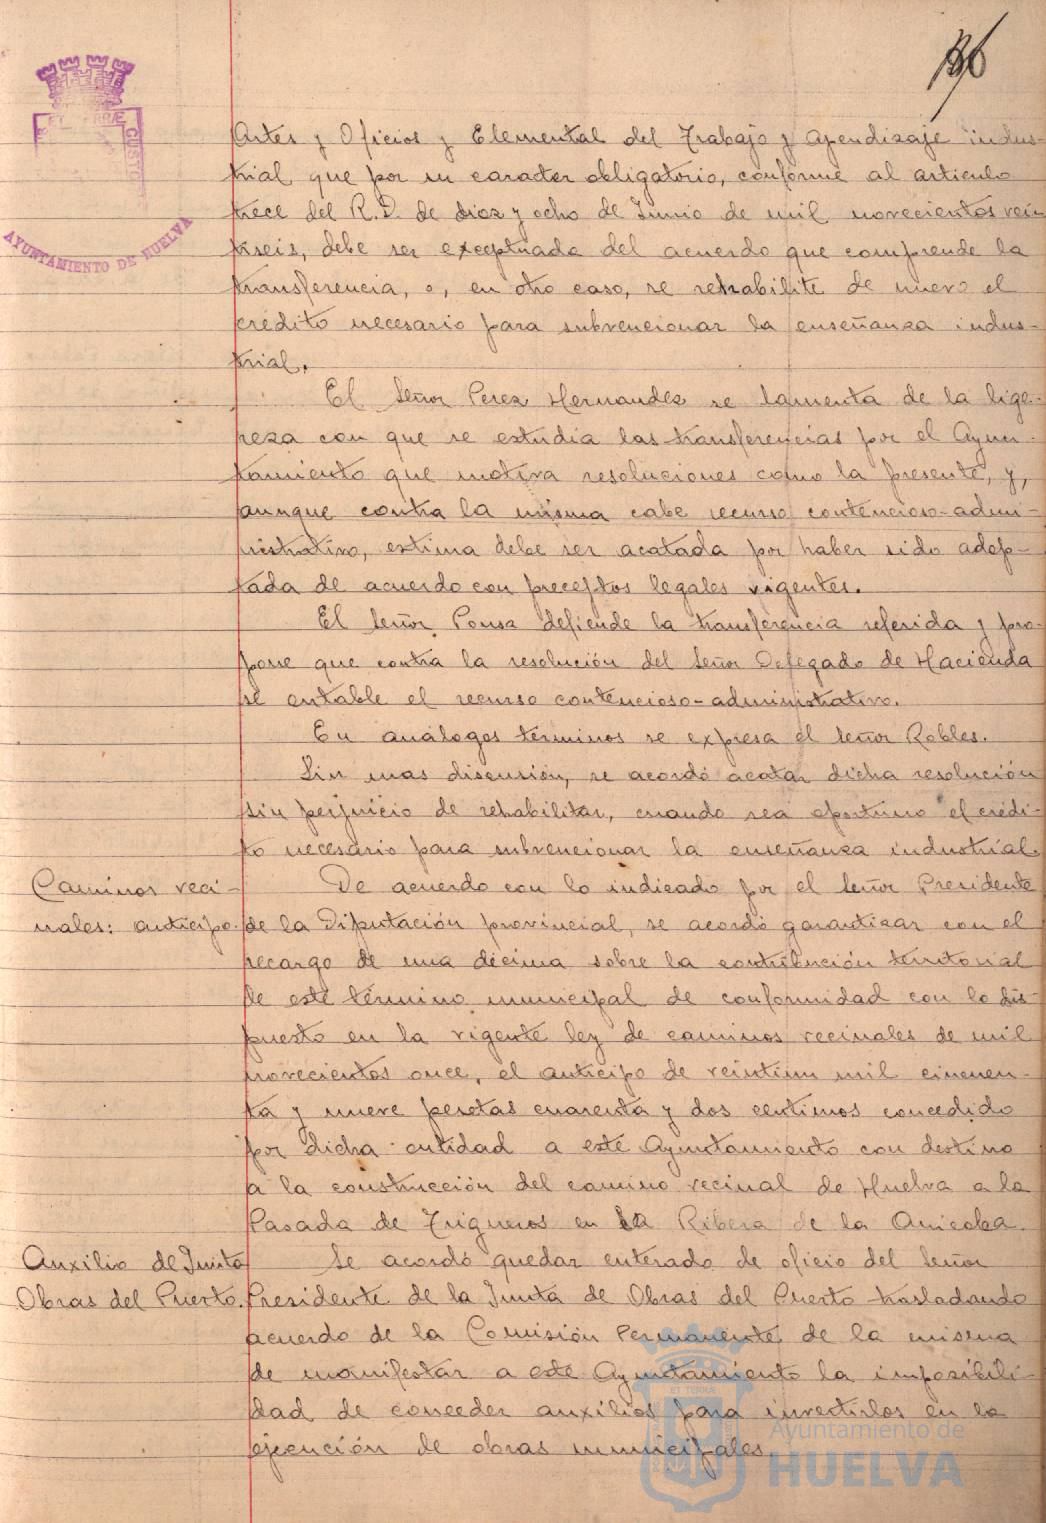 136
ET TERRÆ
CUSTO
AYUNTAMIENTO DE HUELVA
Artes y Oficios y Elemental del Trabajo y Apendizaje indus-
trial que por su caracter obligatorio, conforme al articulo
trece del R.D. de diez y ocho de Junio de mil novecientos vein-
tiseis, debe ser exceptuada del acuerdo que comprende la
transferencia, o, en otro caso, se rehabilite de nuevo el
crédito necesario para subvencionar la enseñanza indus-
trial.
El Señor Perez Hernandez se lamenta de la lige-
reza con que se estudia las transferencias por el Ayun-
tamiento que motiva resoluciones como la presente, y,
aunque contra la misma cabe recurso contencioso-admi-
nistrativo, estima debe ser acatada por haber sido adop-
tada de acuerdo con preceptos legales vigentes.
El Señor Ponsa defiende la transferencia referida y pro-
pone que contra la resolución del Señor Delegado de Hacienda
se entable el recurso contencioso-administrativo.
En análogos términos se expresa el Señor Robles.
Sin mas discusión, se acordó acatar dicha resolución
sin perjuicio de rehabilitar, cuando sea oportuno el crédi-
to necesario para subvencionar la enseñanza industrial.
Caminos veci-
nales: anticipo.
De acuerdo con lo indicado por el Señor Presidente
de la Diputación provincial, se acordó garantizar con el
recargo de una décima sobre la contribución territorial
de este término municipal de conformidad con lo dis-
puesto en la vigente ley de caminos vecinales de mil
novecientos once, el anticipo de veintiun mil cincuen-
ta y nueve pesetas cuarenta y dos centimos concedido
por dicha entidad a este Ayuntamiento con destino
a la construcción del camino vecinal de Huelva a la
Pasada de Trigueros en la Ribera de la Anicoba.
Auxilio de Junta
Obras del Puerto.
Se acordó quedar enterado de oficio del Señor
Presidente de la Junta de Obras del Puerto trasladando
acuerdo de la Comisión Permanente de la misma
de manifestar a este Ayuntamiento la imposibili-
dad de conceder auxilios para invertirlos en la
ejecución de obras municipales.
Ayuntamiento de
HUELVA